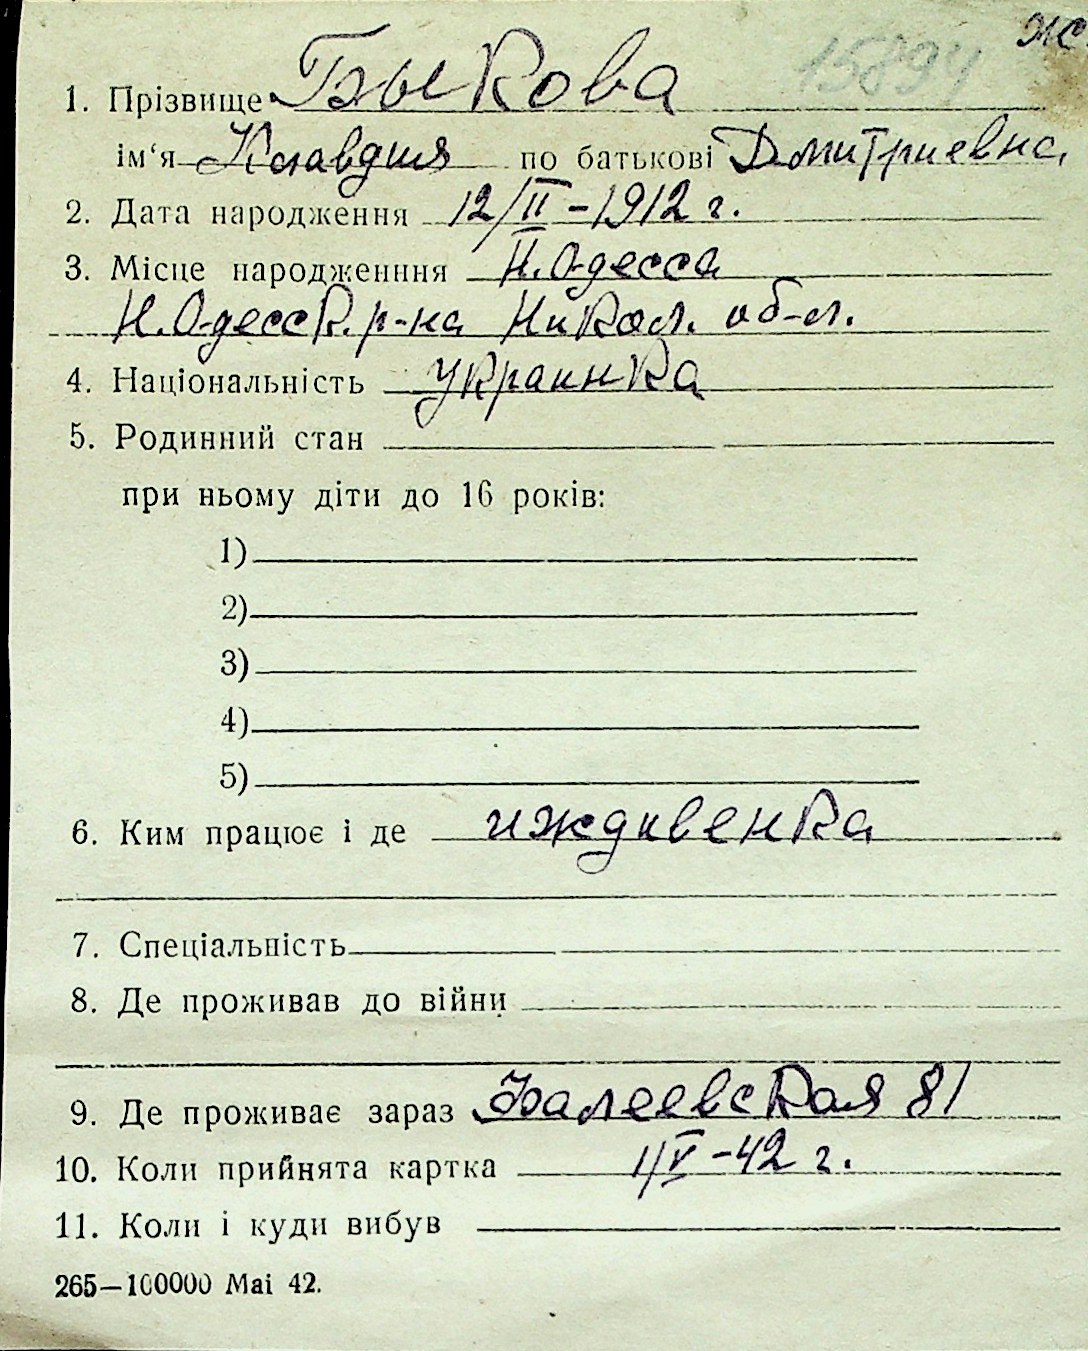 15894 ж
1. Прізвище Быкова
ім‘я Клавдия по батькові Дмитриевна
2. Дата народження 12/II-1912 г.
3. Місце народженння Н.Одесса
Н.Одесск. р-на Никол. об-л.
4. Національність украинка
5. Родинний стан
при ньому діти до 16 років:
1)
2)
3)
4)
5)
6. Ким працює і де иждивенка
7. Спеціальність
8. Де проживав до війни
9. Де проживає зараз 81
10. Коли прийнята картка 1/V-42 г.
11. Коли і куди вибув
265—100000 Маі 42.